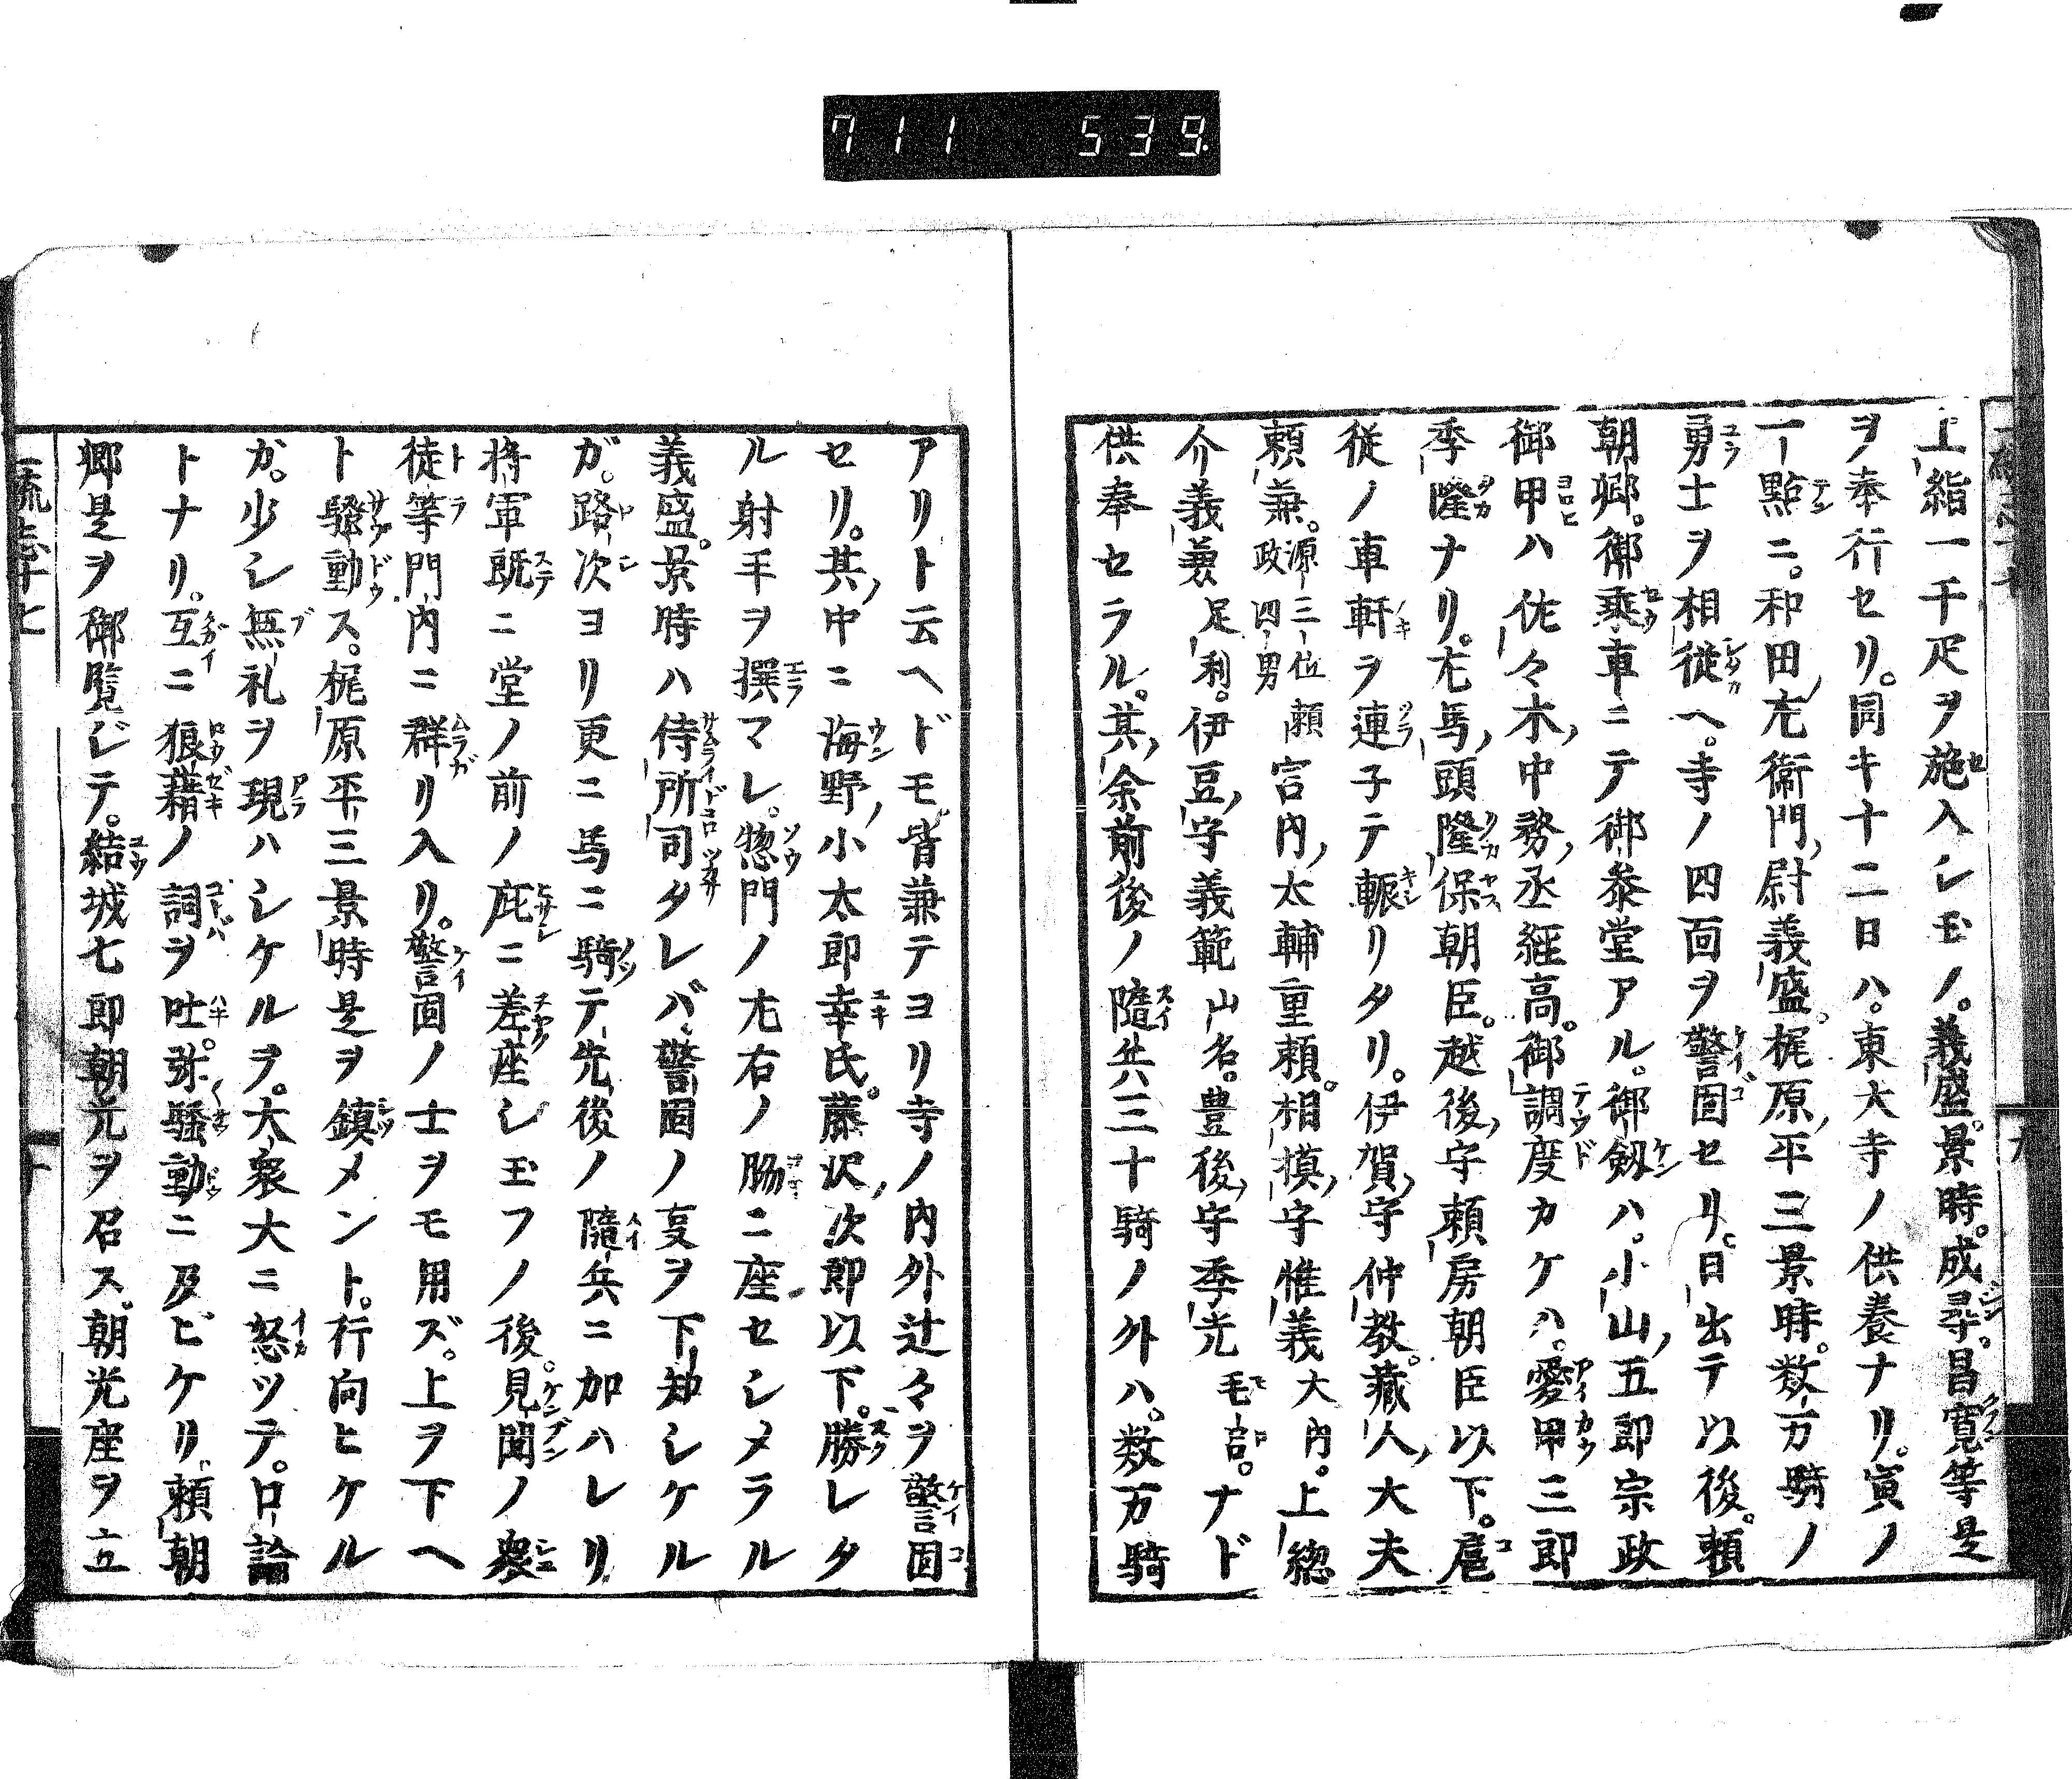 711 539
上絹一千疋ヲ施入シ玉ノ。義盛。景時。成尋。昌寛等是
ヲ奉行セリ。同キ十二日ハ。東大寺ノ供養ナリ。寅ノ
一點ニ。和田左衛門尉義盛。梶原平三景時。数万騎ノ
勇士ヲ相従ヘ。寺ノ四面ヲ警固セリ。日出テ以後。頼
朝郷。御乗車ニテ御参堂アル。御劔ハ。小山五郎宗政
御甲ハ佐々木中務丞経高。御調度カケハ。愛甲三郎
季隆ナリ。左馬頭隆保朝臣。越後守頼房朝臣以下。扈
従ノ車軒ヲ連子テ轅リタリ。伊賀守仲教。蔵人大夫
頼兼。源三位頼政四男 宮内大輔重頼。相摸守惟義大内。上総
介義兼足利。伊豆守義範山名。豊後守季光毛呂。ナド
供奉セラル。其余前後ノ隨兵三十騎ノ外ハ。数万騎
アリト云ヘドモ。皆兼テヨリ寺ノ内外辻々ヲ警固
セリ。其中ニ海野小太郎幸氏。藤沢次郎以下。勝レタ
ル射手ヲ撰マレ。惣門ノ左右ノ脇ニ座セシメラル
義盛。景時ハ侍所司タレバ。警固ノ㕝ヲ下知シケル
ガ。路次ヨリ更ニ馬ニ騎テ先後ノ隨兵ニ加ハレリ
将軍既ニ堂ノ前ノ庇ニ差座シ玉フノ後。見聞ノ衆
徒等門内ニ群リ入リ。警固ノ士ヲモ用ズ。上ヲ下ヘ
ト騒動ス。梶原平三景時是ヲ鎮メント。行向ヒケル
ガ。少シ無礼ヲ現ハシケルヲ。大衆大ニ怒ツテ。口論
トナリ。互ニ狼藉ノ詞ヲ吐。弥騒動ニ及ビケリ。頼朝
郷是ヲ御覧ジテ。結城七郎朝光ヲ召ス。朝光座ヲ立